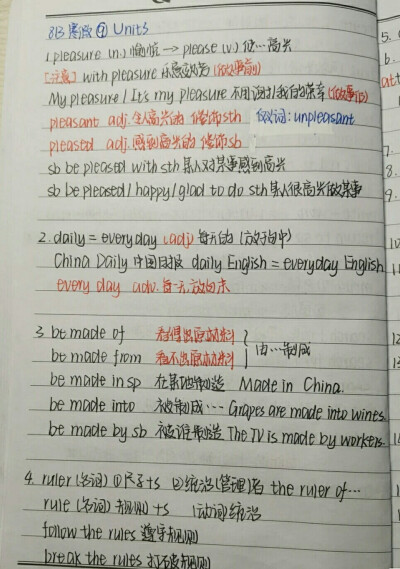 8B 寒假⑨ Unit5
1. pleasure (n.) 愉悦 → please (v.) 使…高兴
[注意] with pleasure 乐意效劳 (做事前)
My pleasure / It's my pleasure 不用谢,我的荣幸 (做事后)
pleasant adj. 令人高兴的 修饰sth 反义词: unpleasant
pleased adj. 感到高兴的 修饰sb
sb be pleased with sth 某人对某事感到高兴
sb be pleased / happy / glad to do sth 某人很高兴做某事
2. daily = everyday (adj) 每天的 (放句中)
China Daily 中国日报 daily English = everyday English
every day adv. 每一天 放句末
3. be made of 看得出原材料
be made from 看不出原材料 由…制成
be made in sp 在某地制造 Made in China.
be made into 被制成… Grapes are made into wines.
be made by sb 被谁制造 The TV is made by workers.
4. ruler (名词) ①尺子+s ②统治(管理)者 the ruler of…
rule (名词) 规则+s (动词)统治
follow the rules 遵守规则
break the rules 打破规则